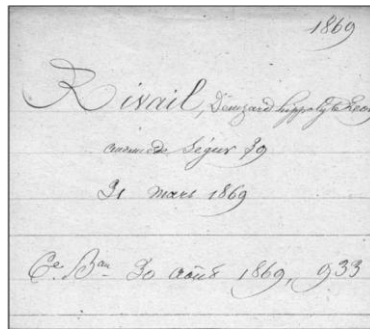 1869
Rivail, Denizard hippolyte Léon
avenue de Ségur 39
31 mars 1869
Cⁿ. Bᵃᵘ 30 août 1869, 933